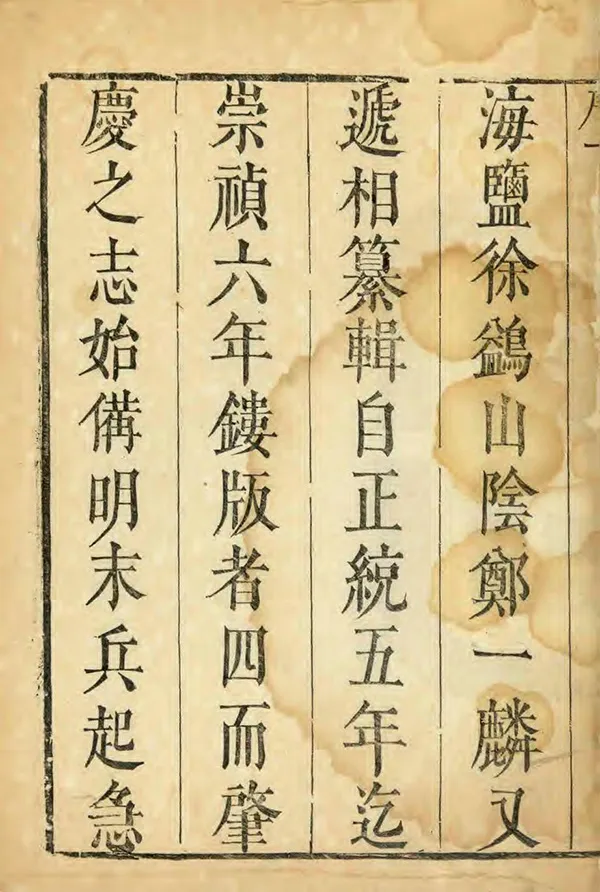 海鹽徐鷁山陰鄭一麟又
遞相纂輯自正統五年迄
崇禎六年鏤版者四而肇
慶之志始備明末兵起急